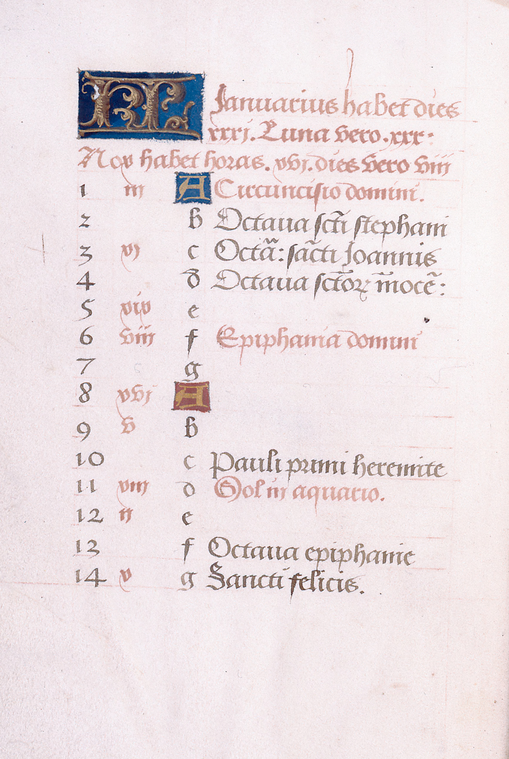 KL Januarius habet dies
xxxj. Luna vero. xxx.
Nox habet horas. xvj. dies vero viij
1 iij A Circuncisio domini.
2 b Octaua scti stephani
3 xj c Octa: sacti Joannis
4 d Octaua sctoꝝ inoce:
5 xix e
6 viij f Epiphania domini
7 g
8 xvj A
9 v b
10 c Pauli primi heremite
11 d Sol in aquario.
12 ij e
13 f Octaua epiphanie
14 x g Sancti felicis.